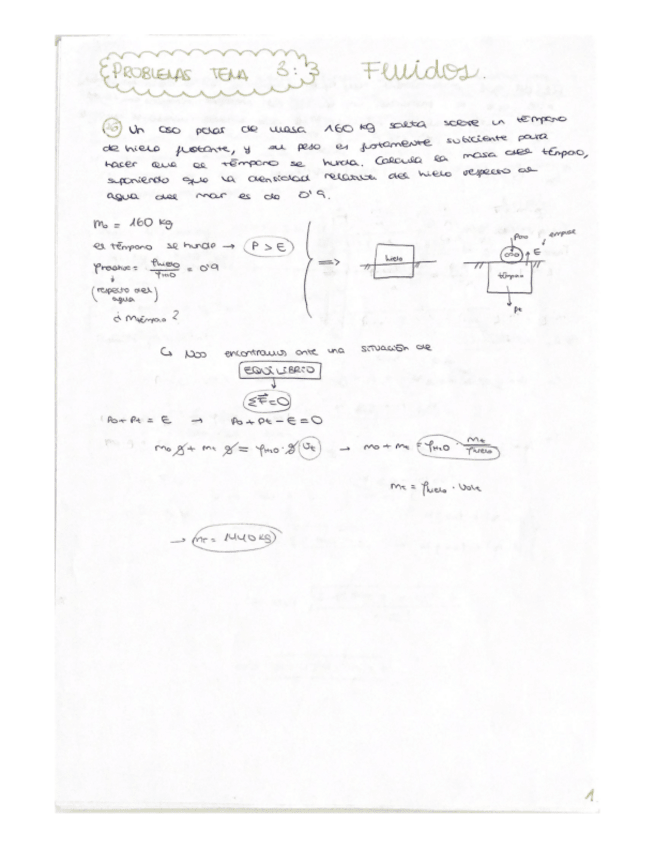 PROBLEMAS TEMA 3: Fluidos.
Un oso polar de masa 160 kg salta sobre un témpano
de hielo flotante, y su peso es justamente suficiente para
hacer que el témpano se hunda. Calcula la masa del témpano,
suponiendo que la densidad relativa del hielo respecto al
agua del mar es de 0'9.
mo = 160 kg
el témpano se hunde → P > E
ρrelativa = ρhielo / ρH2O = 0'9
(respecto del agua)
¿ mtémpano ?
⇒
hielo
Poso
empuje
E
témpano
Pt
↳ Nos encontramos ante una situación de
EQUILIBRIO
ΣF = 0
Po + Pt = E → Po + Pt - E = 0
mo g + mt g = ρH2O · g Vt → mo + mt = ρH2O · mt / ρhielo
mt = ρhielo · Volt
→ mt = 1440 kg
1